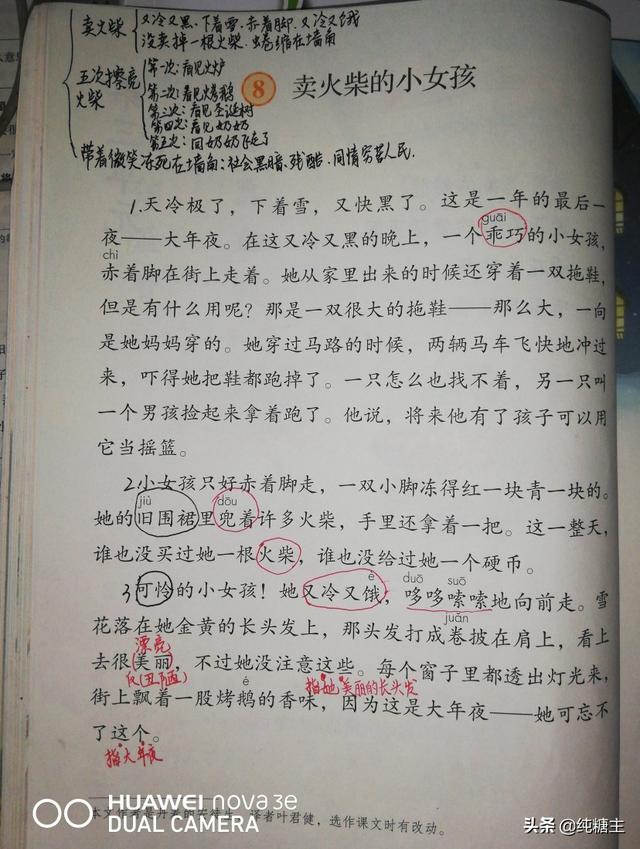 卖火柴
又冷又黑、下着雪、赤着脚、又冷又饿
没卖掉一根火柴、蜷缩在墙角
五次擦亮火柴
第一次：看见火炉
第二次：看见烤鹅
第三次：看见圣诞树
第四次：看见奶奶
第五次：同奶奶飞走了
带着微笑冻死在墙角：社会黑暗、残酷、同情穷苦人民.
8 卖火柴的小女孩
1.天冷极了，下着雪，又快黑了。这是一年的最后一
guāi
夜——大年夜。在这又冷又黑的晚上，一个乖巧的小女孩，
chì
赤着脚在街上走着。她从家里出来的时候还穿着一双拖鞋，
但是有什么用呢？那是一双很大的拖鞋——那么大，一向
是她妈妈穿的。她穿过马路的时候，两辆马车飞快地冲过
来，吓得她把鞋都跑掉了。一只怎么也找不着，另一只叫
一个男孩捡起来拿着跑了。他说，将来他有了孩子可以用
它当摇篮。
2小女孩只好赤着脚走，一双小脚冻得红一块青一块的。
jiù dōu
她的旧围裙里兜着许多火柴，手里还拿着一把。这一整天，
谁也没买过她一根火柴，谁也没给过她一个硬币。
è duō suō
3可怜的小女孩！她又冷又饿，哆哆嗦嗦地向前走。雪
juǎn
花落在她金黄的长头发上，那头发打成卷披在肩上，看上
漂亮
去很美丽，不过她没注意这些。每个窗子里都透出灯光来，
反(丑陋)
指她美丽的长头发
é
街上飘着一股烤鹅的香味，因为这是大年夜——她可忘不
了这个。
指大年夜
本文作者是丹麦的安徒生，译者叶君健，选作课文时有改动。
HUAWEI nova 3e
DUAL CAMERA
头条 @纯糖主